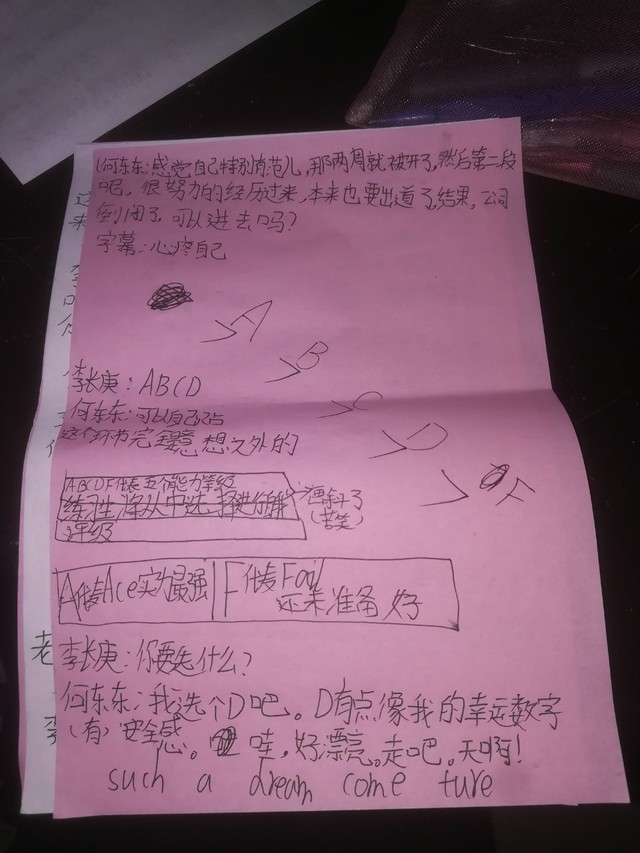 何东东:感觉自己特别有范儿,那两周就被开了,然后第二段
呢,很努力的经历过来,本来也要出道了,结果,公司
倒闭了,可以进去吗?
字幕:心疼自己
>A
>B
李长庚:ABCD
>C
何东东:可以自己占
>D
这个环节完全意想之外的
>F
ABCDF代表五个能力等级
练习生将从中选择进行自我
评级
(苦笑)
A代表Ace实力最强
F代表Fail
还未准备好
李长庚:你要选什么?
何东东:我选个D吧。D有点像我的幸运数字
(有)安全感。哇,好漂亮。走吧。天啊!
such a dream come ture